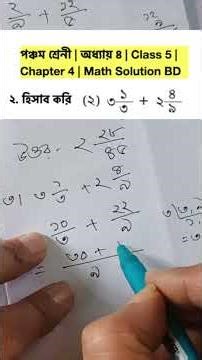 ২/৯ + ২২/৫
২২
পঞ্চম শ্রেনী | অধ্যায় ৪ | Class 5 |
Chapter 4 | Math Solution BD
২. হিসাব করি (২) ৩ ১/৩ + ২ ৪/৯
উত্তর- ২ ২৮/৪৫
৩। ৩ ১/৩ + ২ ৪/৯
১০/৩ + ২২/৯
= ৩০ +
৯